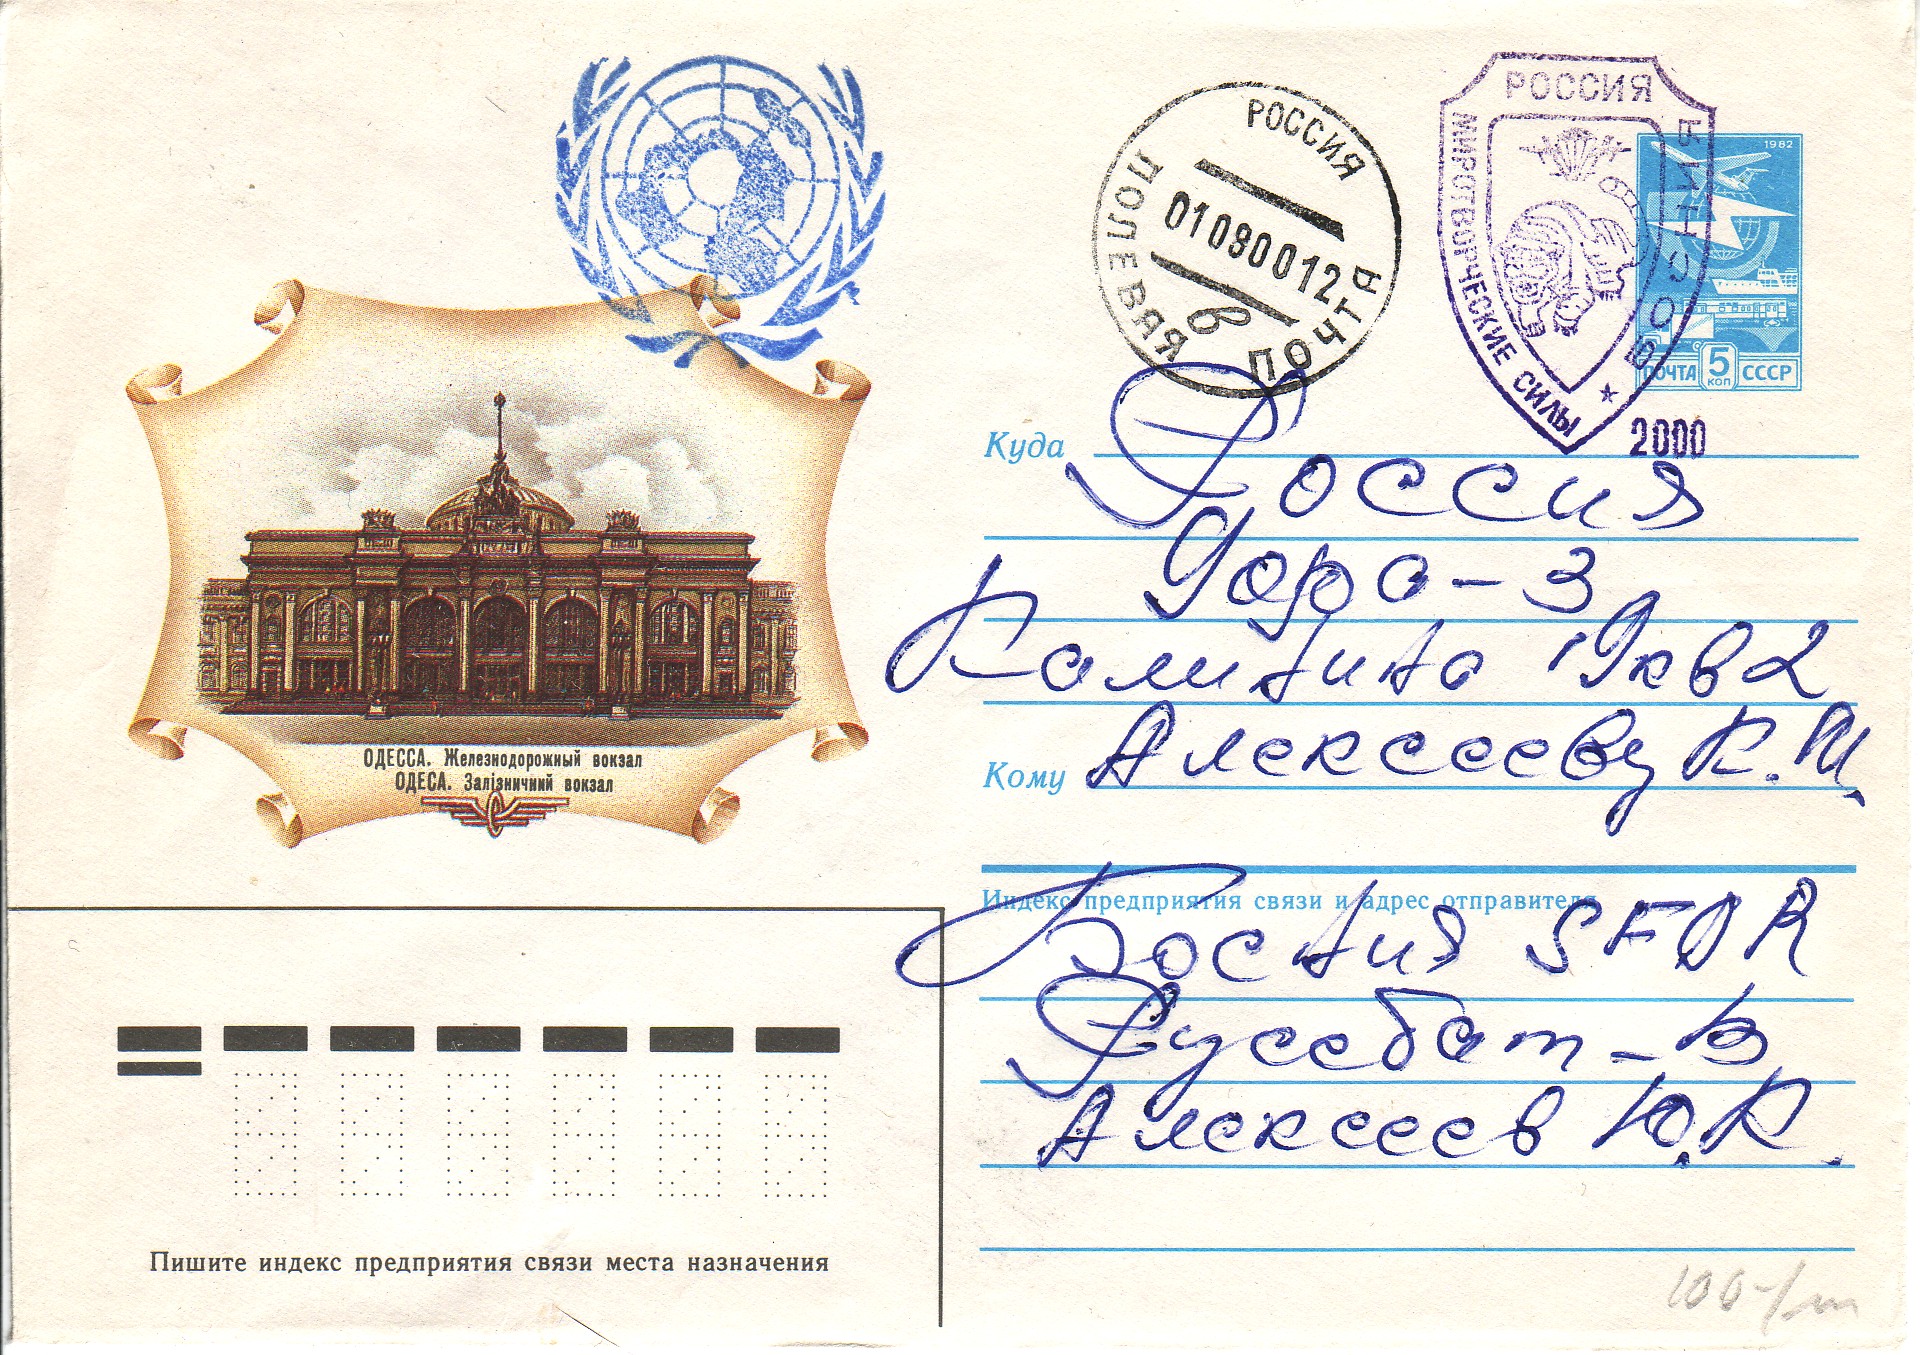 РОССИЯ
ПОЛЕВАЯ ПОЧТА
010900012
в
РОССИЯ
МИРОТВОРЧЕСКИЕ СИЛЫ
БОСНИЯ
2000
1982
ПОЧТА 5 КОП СССР
ОДЕССА. Железнодорожный вокзал
ОДЕСА. Залізничний вокзал
Куда Россия
Калинина 19 кв 2
Кому Алексееву К.
Индекс предприятия связи и адрес отправителя
Босния SFOR
Русбат - В
Алексеев Ю.К.
Пишите индекс предприятия связи места назначения